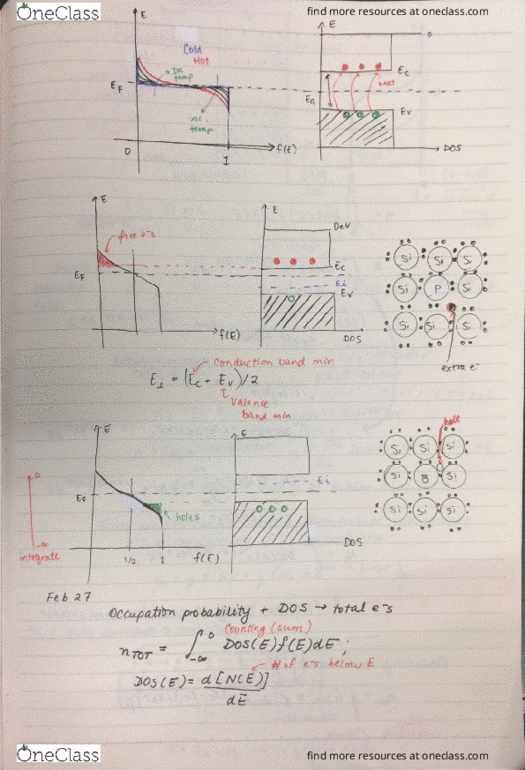 OneClass
find more resources at oneclass.com
E
Cold
Hot
Dec
temp
EF
inc.
temp
0
1
f(E)
E
0
Ec
EG
want
Ev
DOS
E
free e-s
EF
f(E)
E
0eV
Ec
Ei
Ev
DOS
Si Si Si
Si P S
Si Si Si
extra e-
conduction band min
Ei = (Ec + Ev)/2
valence
band min
E
0
EF
holes
-∞
integrate
1/2
1
f(E)
E
Ei
DOS
hole
Si Si Si
Si B Si
Si Si Si
Feb 27
Occupation probability + DOS → total e-s
counting (sum)
nTOT = ∫-∞0 DOS(E)f(E)dE;
# of e-s below E
DOS(E) = d[N(E)]
dE
OneClass
find more resources at oneclass.com